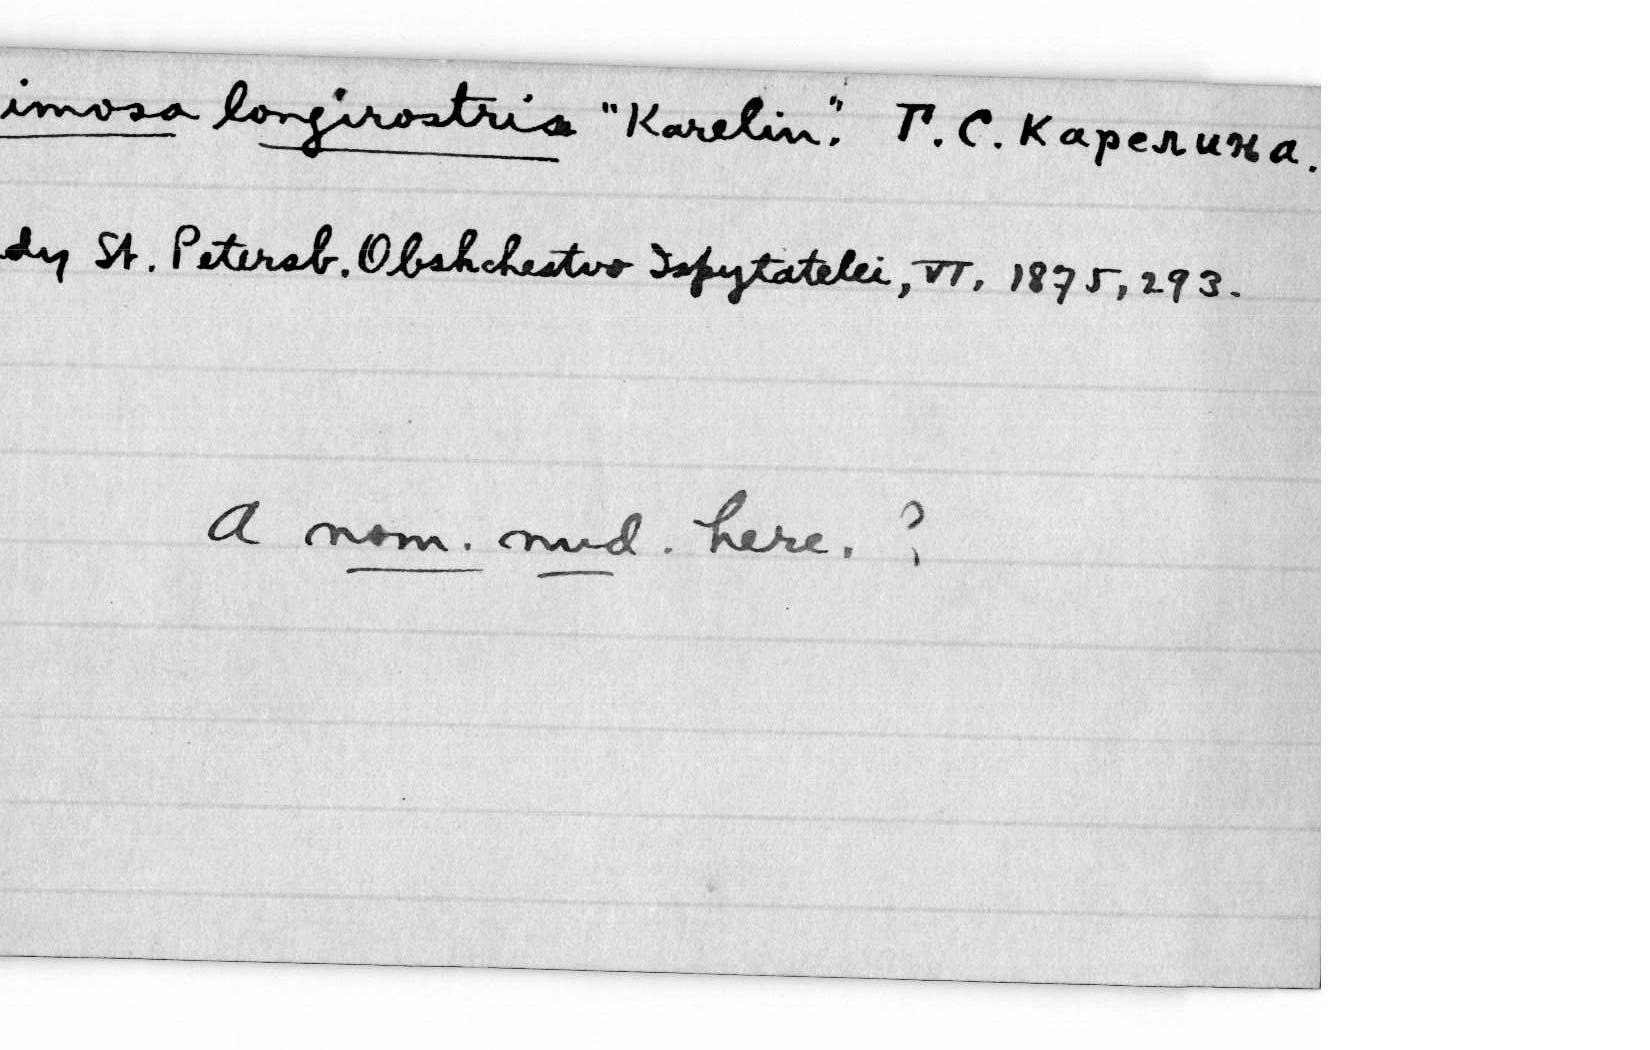 imosa longirostris "Karelin". Г. С. Карелина.
dy St. Petersb. Obshchestvo Ispytatelei, VI, 1875, 293.
A nom. nud. here. ?